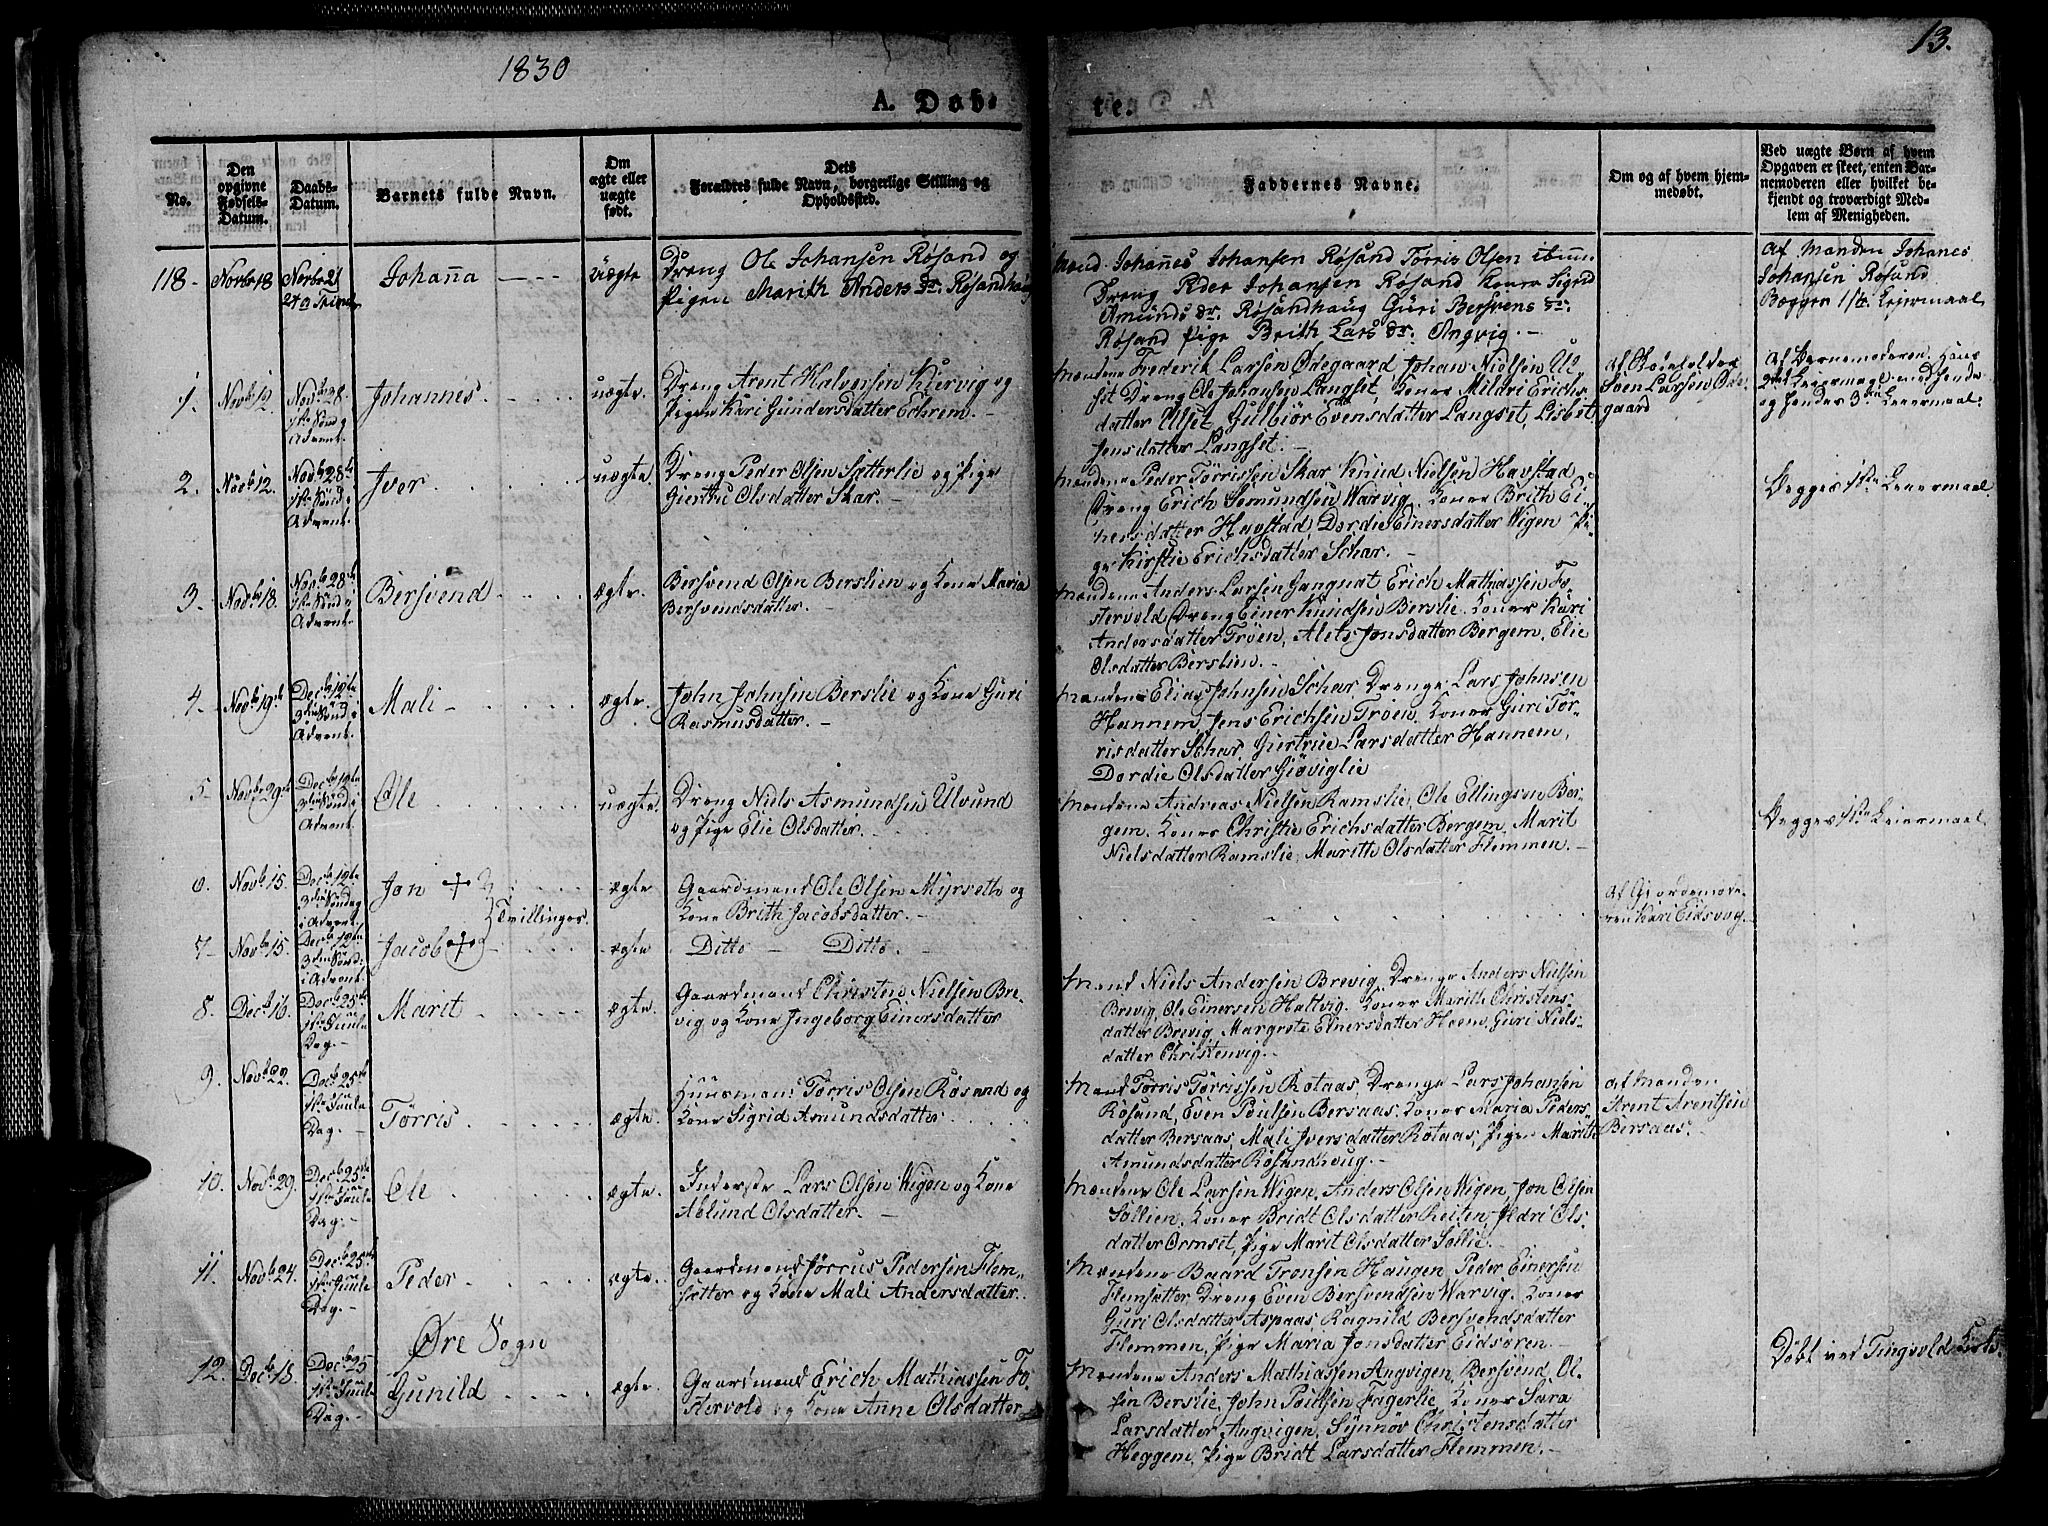 1830
13.
A. Døb-
te.
No.
Den opgivne Fødsels-Datum.
Daabs-Datum.
Barnets fulde Navn.
Om ægte eller uægte født.
Dets Forældres fulde Navn, borgerlige Stilling og Opholdssted.
Faddernes Navne.
Om og af hvem hjem-
medøbt.
Ved uægte Børn af hvem
Opgaven er skeet, enten Bar-
nemoderen eller hvilket be-
kjendt og troværdigt Med-
lem af Menigheden.
118 Novbr 18 Novbr 21 Johanna uægte
Dreng Ole Johansen Røsand og
Pigen Marith Anders dr. Røsandhaug
Mand Johannes Johansen Røsand Tørris Olsen ibm
Dreng Peder Johansen Røsand Koner Sigrid
Amunds dr. Røsandhaug Guri Bersvens dr.
Røsand Pige Brith Lars dr. Angvig. -
Af Manden Johanes
Johansen Røsand
Begges 1ste Leiermaal
1. Novb. 12. Novb. 28. Johannes. uægte.
1ste Sönd i
Advent.
Dreng Arent Halvorsen Kiervig og
Pigen Kari Gundersdatter Echrem. -
Mændene Frederik Larsen Ødegaard Johan Nielsen Ul-
set Dreng Ole Johansen Langset, Koner Mildri Erichs-
datter Ulset, Gulbiör Evensdatter Langset, Lisbet
Jensdatter Langset. -
Sven Larsen Øde-
gaard
Af Barnemoderen. Hans
2det Leiermaal med hende
og hendes 3die Leiermaal.
2. Novb. 12. Novb 28de Iver uægte.
1ste Sönd i
Advent.
Dreng Peder Olsen Sætterlie og Pige
Giertru Olsdatter Skar. -
Mændene Peder Tørrissen Skar Knud Nielsen Havstad
Dreng Erich Semundsen Warvig. Koner Brith Ei-
nersdatter Havstad, Dordie Einersdatter Wigen Pi-
ge Kirstie Erichsdatter Schar. -
Begges 1ste Leiermaal.
3. Novb. 18. Novb 28de Bersvend ægte.
1ste Sönd i
Advent.
Bersvend Olsen Berslien og Kone Maria
Bersvendsdatter. -
Mændene Anders Larsen Erich Mathiassen Fo-
stervold Dreng Einer Knudsen Berslie. Koner Kari
Andersdatter Trøen, Alets Jonsdatter Bergem, Elie
Olsdatter Berslien. -
4. Novb. 19de Decb 12te Mali - ægte.
3die Sönd i
Advent.
John Johnsen Berslie og Kone Guri
Rasmusdatter. -
Mændene Elias Johnsen Schar, Drenge Lars Johnsen
Hannem, Jens Erichsen Trøen. Koner Guri Tør-
risdatter Schar, Giertrue Larsdatter Hannem,
Dordie Olsdatter Giøviglie
5. Novb. 29de Decb 12te Ole uægte.
3die Sönd i
Advent.
Dreng Niels Asmundsen Ulvund
og Pige Elie Olsdatter. -
Mændene Andreas Nielsen Ramslie, Ole Ellingsen Ber-
gem. Koner Christie Erichsdatter Bergem, Marit
Nielsdatter Ramslie, Marith Olsdatter Flemmen. -
Begges 1ste Leiermaal
6. Novb. 15. Decb. 12te Jon + ægte
3die Sönd
i Advent.
Tvillinger.
Gaardmand Ole Olsen Myrseth og
Kone Brith Jacobsdatter. -
Af Giordemode-
ren Kari Eidsvog.
7. Novb. 15. Decb. 12te Jacob + - ægte.
3die Sönd:
i Advent.
Ditto - Ditto.
8. Decb. 16. Decb. 25de Marit ægte.
1ste Juule
Dag. -
Gaardmand Christen Nielsen Bre-
vig og Kone Ingeborg Einersdatter
Mand Niels Andersen Brevig, Drenge Anders Nielsen
Brevig, Ole Einersen Haltvig. Koner Marith Christens-
datter Brevig Margrete Einersdatter Hoem, Guri Niels-
datter Christenvig. -
9. Novb. 22. Decb. 25de Tørris. ægte.
1ste Juule
Dag. -
Huusmand Tørris Olsen Røsand og
Kone Sigrid Amundsdatter.
Mand Tørris Tørrissen Rotaas, Drenge Lars Johansen
Røsand, Even Poulsen Bersaas. Koner Maria Peders-
datter Bersaas Mali Iversdatter Rotaas, Pige Marith
Amundsdatter Røsandhaug. -
af Manden
Arent Arentsen
Bersaas. -
10. Novb. 29. Decb. 25de Ole ægte.
1ste Juule
Dag. -
Inderste Lars Olsen Wigen og Kone
Ablund Olsdatter. -
Mændene Ole Larsen Wigen, Anders Olsen Wigen, Jon Olsen
Sollien. Koner Bridt Olsdatter Reiten, Ildri Ols-
datter Ormset, Pige Marit Olsdatter Sollie. -
11. Novb. 24. Decb. 25de Peder ægte.
1ste Juule
Dag. -
Gaardmand Jörrus Pedersen Flem-
sætter og Kone Mali Andersdatter.
Mændene Baard Tronsen Haugen, Peder Einersen
Flemsætter Dreng Even Bersvendsen Warvig. Koner
Guri Olsdatter Aspaas Ragnild Bersvendsdatter
Flemmen, Pige Maria Jonsdatter Eidsøren. -
Øre Sogn
12. Decb. 18. Decb. 25 Gunild ægte.
1ste Juule
Dag. -
Gaardmand Erich Mathiassen Fo-
stervold og Kone Anne Olsdatter
Mændene Anders Mathiassen Angvigen, Bersvend Ol-
sen Berslie, John Poulsen Fagerlie, Koner Sara
Larsdatter Angvigen, Synnøv Christensdatter
Heggem, Pige Bridt Larsdatter Flemmen. -
Døbt ved Tingvold Kirke.